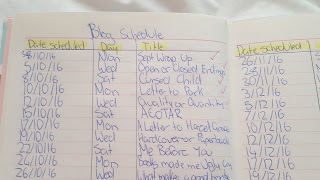 Blog Schedule
Date scheduled Day Title Date scheduled
3/10/16 Mon Sept Wrap Up 26/11/16
5/10/16 Wed Open or Closed Endings
8/10/16 Sat Cursed Child
10/10/16 Mon Letter to
12/10/16 Wed Quality or Quantity 5/12/16
15/10/16 Sat ACOTAR 7/12/16
17/10/16 Mon A Letter to Hazel Grace 10/12/16
19/10/16 Wed Hardcover or Paperback 12/12/16
22/10/16 Sat Me Before You 14/12/16
24/10/16 Mon Books made me Ugly Cry
26/10/16 Wed What makes a good book 19/12/16